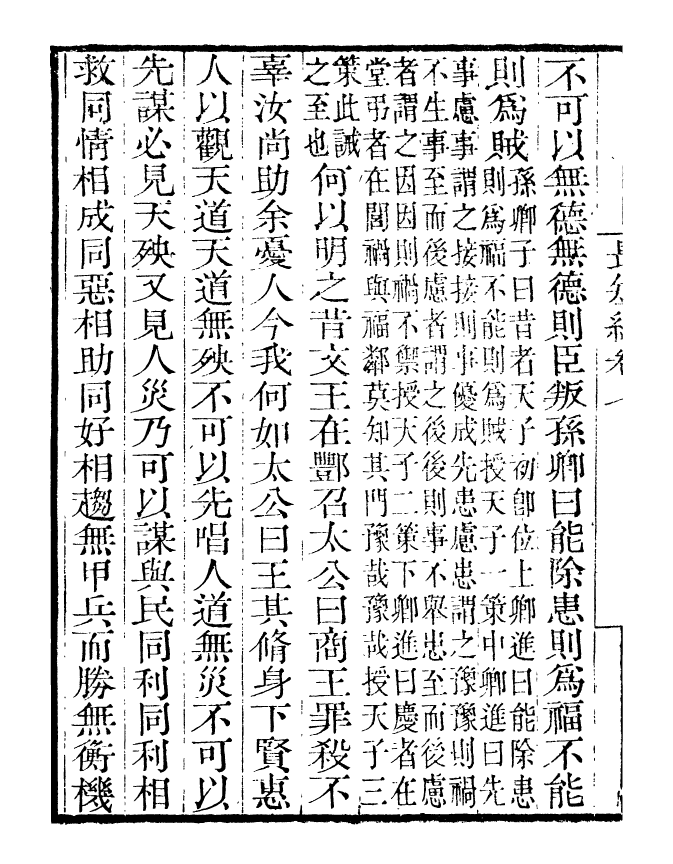 不可以無德無德則臣叛孫卿曰能除患則爲福不能
則爲賊
孫卿子曰昔者天子初卽位上卿進曰能除患
則爲福不能則爲賊授天子一策中卿進曰先
事慮事謂之接接則事優成先患慮患謂之豫豫則禍
不生事至而後慮者謂之後後則事不舉患至而後慮
者謂之因因則禍不禦授天子二策下卿進曰慶者在
堂弔者在閭禍與福鄰莫知其門豫哉豫哉授天子三
策此誡
之至也
何以明之昔文王在酆召太公曰商王罪殺不
辜汝尚助余憂人今我何如太公曰王其脩身下賢惠
人以觀天道天道無殃不可以先唱人道無災不可以
先謀必見天殃又見人災乃可以謀與民同利同利相
救同情相成同惡相助同好相趨無甲兵而勝無衝機